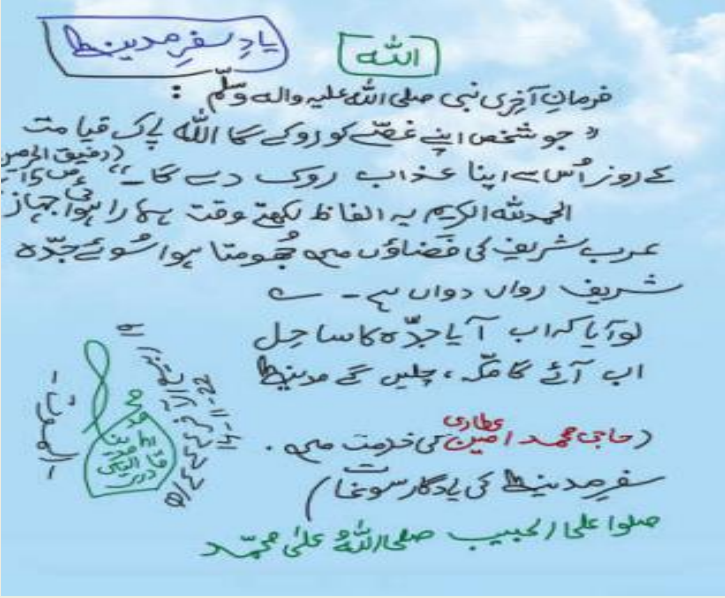 یادِ سفرِ مدینہ
اللہ
فرمانِ آخری نبی صلی اللہ علیہ والہ وسلّم :
"جو شخص اپنے غصّے کو روکے گا اللہ پاک قیامت
کے روز اُس سے اپنا عذاب روک دے گا۔" (رفیق الحرمین ص
الحمدللہ الکریم یہ الفاظ لکھتے وقت ہمارا ہوائی جہاز
عرب شریف کی فَضاؤں میں جُھومتا ہوا سُوئے جدّہ
شریف رواں دواں ہے۔ ؎
لو آیا کہ اب آیا جدّہ کا ساحل
اب آئے گا مکّہ، چلیں گے مدینہ
(حاجی محمد امین عطاری کی خدمت میں
سفرِ مدینہ کی یادگار سوغات)
صلوا علی الحبیب صلی اللہُ علیٰ محمّد
۔الموت۔